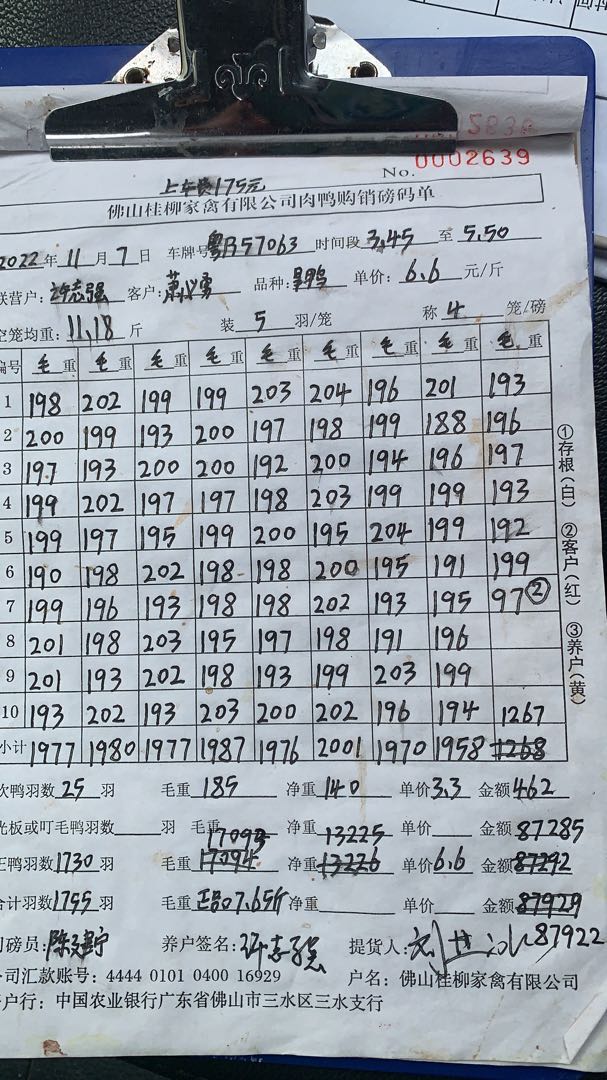 No.
0002639
上车费175元
佛山桂柳家禽有限公司肉鸭购销磅码单
2022年11月7日 车牌号粤B57063 时间段3.45至5.50
联营户:许志强 客户: 品种: 单价:6.6元/斤
空笼均重:11.18斤 装5羽/笼 称4笼/磅
编号 毛重 毛重 毛重 毛重 毛重 毛重 毛重 毛重 毛重
1 198 202 199 199 203 204 196 201 193
2 200 199 193 200 197 198 199 188 196
3 197 193 200 200 192 200 194 196 197
4 199 202 197 197 198 203 199 199 193
5 199 197 195 199 200 195 204 199 192
6 190 198 202 198 198 200 195 191 199
7 199 196 193 198 198 202 193 195 97②
8 201 198 203 195 197 198 191 196
9 201 193 202 198 193 199 203 199
10 193 202 193 203 200 202 196 194 1267
小计 1977 1980 1977 1987 1976 2001 1970 1958 1268
①存根(白) ②客户(红) ③养户(黄)
次鸭羽数25羽 毛重185 净重140 单价3.3 金额462
光板或叮毛鸭羽数 羽 毛重17093 净重13225 单价 金额87285
正鸭羽数1730羽 毛重17094 净重13226 单价6.6 金额87292
合计羽数1755羽 毛重 7.65斤 净重 单价 金额87929
司磅员: 养户签名: 提货人: 87922
公司汇款账号: 4444 0101 0400 16929 户名: 佛山桂柳家禽有限公司
开户行: 中国农业银行广东省佛山市三水区三水支行